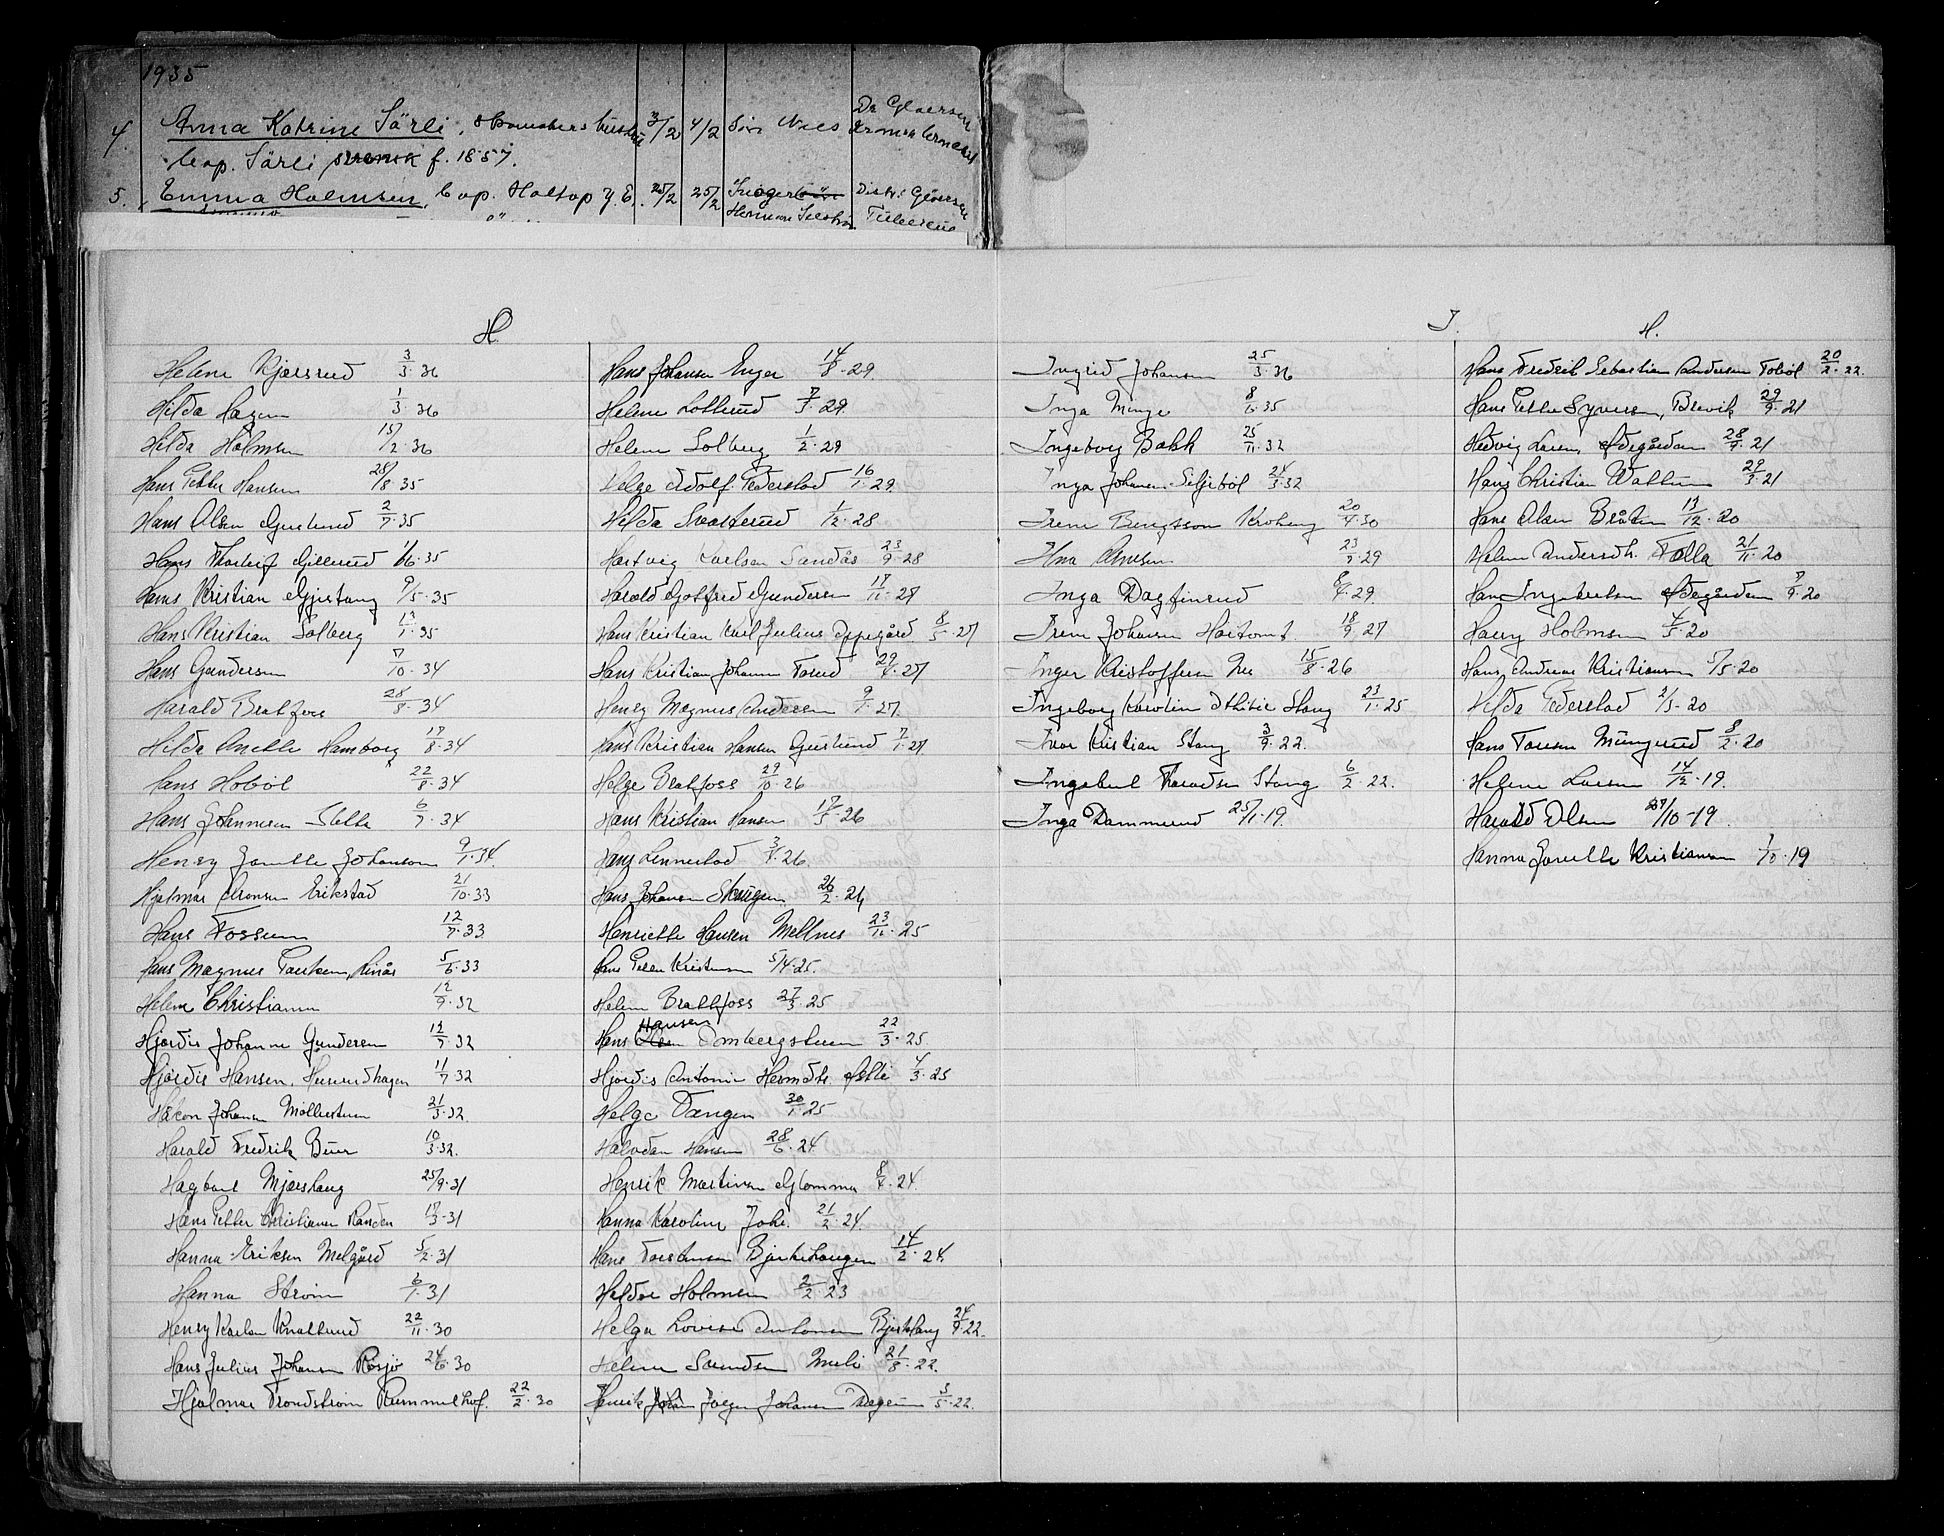 1935
4. Anna Katrine Särli, 3/2 4/2 Nils Dr Gloersen
Cap. Särli f. 1857.
5. Emma Holmsen, Cap. Holtop 25/2 25/2 Distr. Gloersen
Herman
H.
Helene Kjærsrud 3/3·36
Hilda Hagen 1/3·36
Hilda Holmsen 15/2·36
Hans Petter Hansen 28/8 35
Hans Olsen Gjuslund 2/7·35
Hans Thorleif Gillerud 1/6·35
Hans Kristian Gjistang 9/5·35
Hans Kristian Solberg 1·35
Hans Gundersen 7/10·34
Harald Bratfoss 28/8·34
Hilda Anette Hamborg 17/8·34
Hans Hobøl 22/8·34
Hans Johannesen Slette 6/7·34
Henry Johansen 9/1·34
Hjalmar Aronsen Erikstad 21/10·33
Hans Fossum 12/7·33
Hans Magnus 5/6·33
Helene Christiansen 12/9·32
Hjørdis Johanne Gundersen 12/7·32
Hjørdis Hansen, 11/7 32
Håkon Johansen Møllerstuen 21/3·32
Harald Fredrik Buer 10/3·32.
Hagbart Mjørshaug 25/9·31
Hans Petter Christiansen Randen 17/3·31
Hanna Eriksen Melgård 5/2·31
Hanna Strøm 6/1·31
Henry Karlsen Knatterud 22/11·30
Hans Julius Johansen Rosjø 24/6·30
Hjalmar Trondstrøm Rummelhof. 22/2·30
Hans Johansen Enger 14/8·29.
Helene Lotterud 7/3·29.
Helene Solberg 1/2·29
Helge Adolf Pederstad 16/1·29.
Hilda Svarterud 1/12·28
Hartvig Karlsen Sandås 23/9·28
Harald Gotfred Gundersen 17/11·27
Hans Kristian Karl Julius Oppegård 8/5·27
Hans Kristian Johansen Torud 29/4·27
Henry Magnus Andersen 9/1·27.
Hans Kristian Hansen Gjuslund 7/1·27
Helge Bratfoss 29/10·26
Hans Kristian Hansen 17/5·26
Hans Lennestad 3/4·26.
Hans Johansen Skaugen 26/2·26
Henriette Hansen Mellnes 23/11·25
Hans Peter Kristensen 5/4·25.
Helene Bratfoss 27/3·25
Hans Hansen Ombergstuen 22/3·25
Hjørdis Antonie Hermdtr. 4/3·25
Helge Tangen 30/1·25
Halvdan Hansen 28/6·24
Henrik Martinsen Glomma 8/4·24.
Hanna Karoline Johs. 21/2·24.
Hans Torstensen Bjerkehaugen 14/2·24.
Holmsen 2/2·23
Helga Lovise Antonsen Bjerkhaug 24/9·22.
Helene Svendsen Meli 21/8·22.
Henrik Jørgen Johansen 3/5·22.
I.
Ingrid Johansen 25/3·36
Inga Minge 8/6·35
Ingeborg Bakk 25/11·32
Inga Johansen Siljebøl 24/3·32
Irene Bengtsson Kroheng 20/4·30
Ina Arnesen 23/9·29
Inga Dagfinrud 8/4·29.
Irene Johansen Haitomt 18/9·27
Inger Kristoffersen 15/8·26
Ingeborg Karoline Othilie Stang 23/1·25
Ivar Kristian Stang 3/9·22.
Ingebret Thorvadsen Stang 6/2·22.
Inga Dammerud 25/1·19.
H.
Hans Fredrik Sebastian Andersen Tobøl 20/2·22.
Hans Petter Syversen, Brevik 29/9·21
Hedvig Larsen Ødegården 28/9·21
Hans Christian Walter 29/3·21
Hans Olsen Bråten 13/12·20
Helene Andersdtr. Folla 21/11·20
Hans Ingebretsen Ødegården 7/9·20
Harry Holmsen 4/5·20
Hans Andreas Kristiansen 1/5·20
Hilda Pederstad 2/3·20
Hans Toresen Mungerud 8/2·20
Helene Larsen 14/12·19.
Harald Olsen 27/10·19
Hanna Jonette Kristiansen 1/10·19